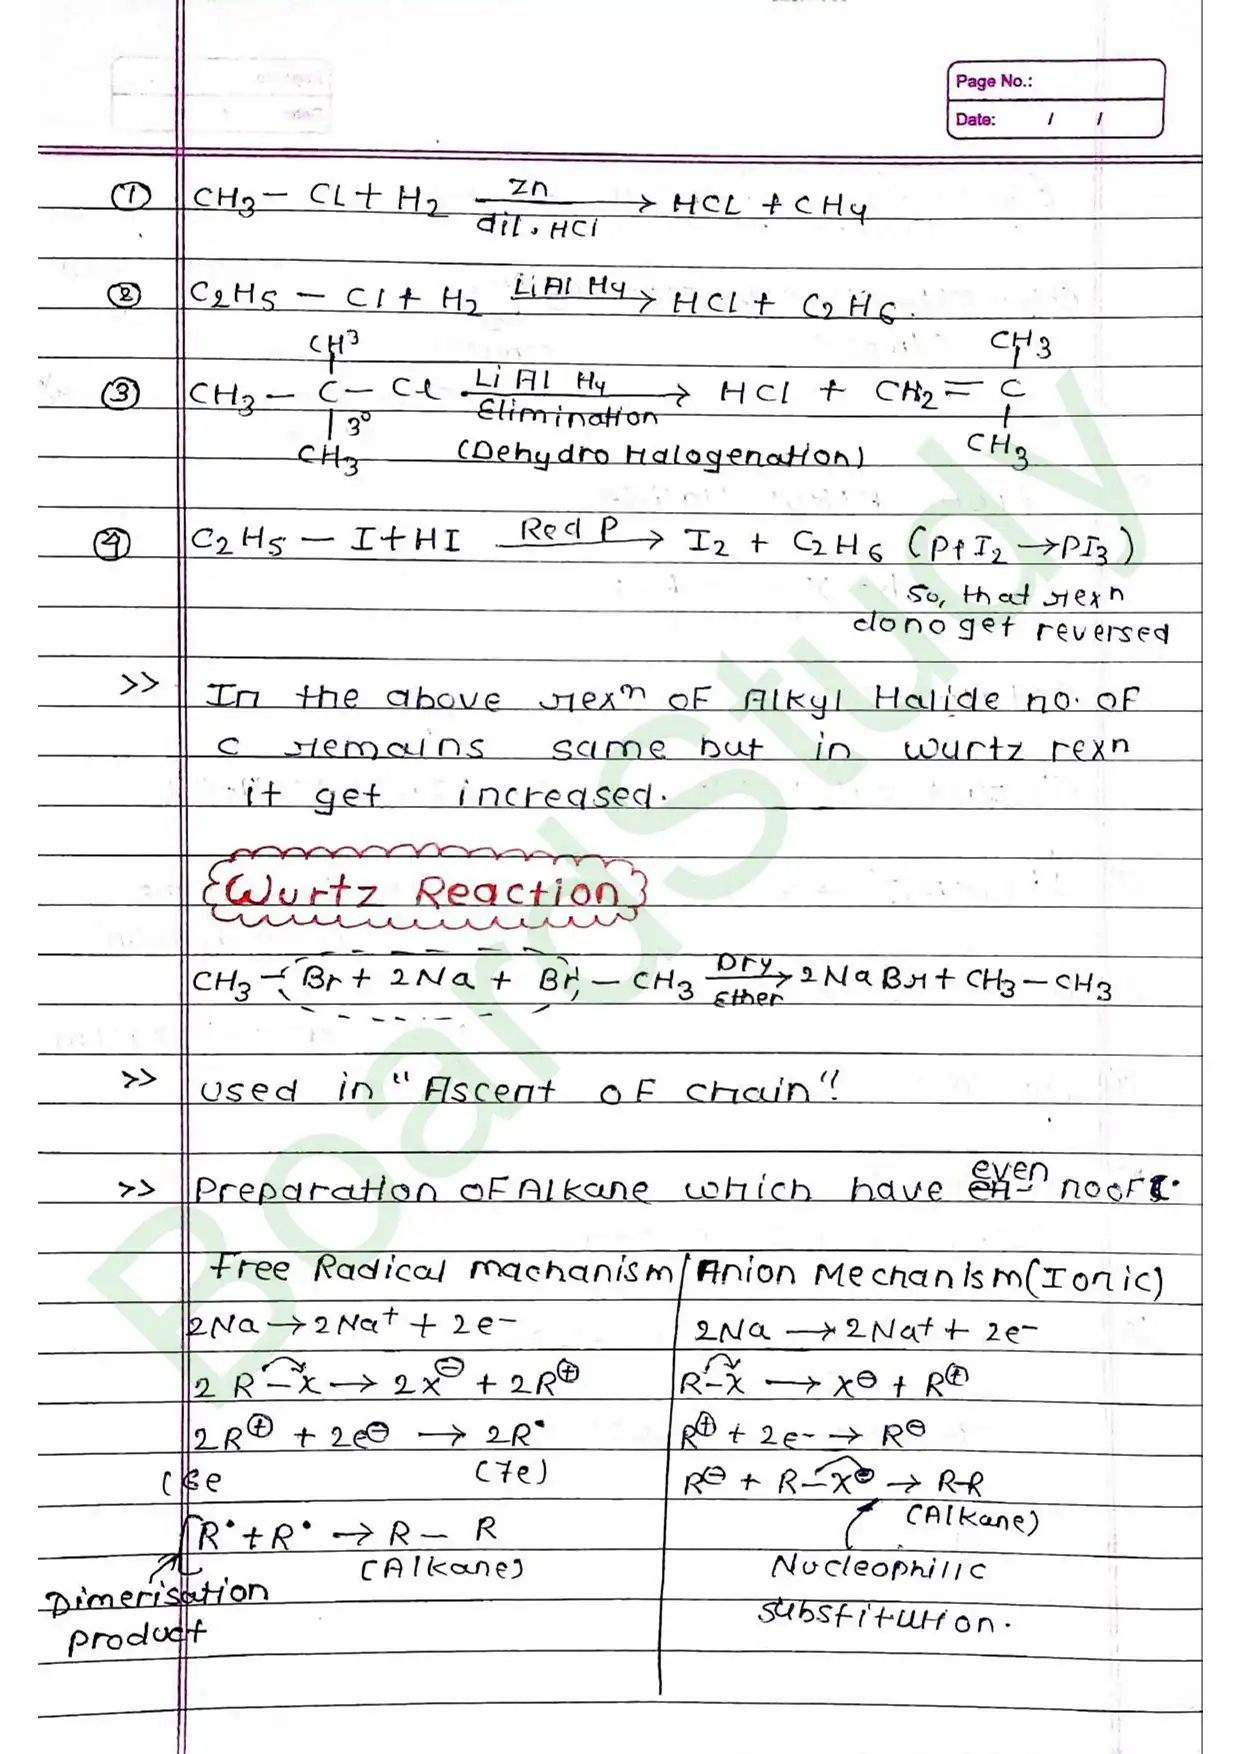 Page No.:
Date: / /
① CH3 - Cl + H2 Zn/dil. HCl → HCl + CH4
② C2H5 - Cl + H2 LiAlH4 → HCl + C2H6.
CH3 CH3
③ CH3 - C - Cl LiAlH4/Elimination → HCl + CH2 = C
| 3° |
CH3 (Dehydro Halogenation) CH3
④ C2H5 - I + HI Red P → I2 + C2H6 (P+I2 → PI3)
so, that rexn
dono get reversed
>> In the above rexn of Alkyl Halide no. of
C remains same but in wurtz rexn
it get increased.
Wurtz Reaction
CH3 - Br + 2Na + Br - CH3 Dry/Ether → 2NaBr + CH3 - CH3
>> used in "Ascent of chain"!
>> Preparation of Alkane which have even no of C.
Free Radical machanism / Anion Mechanism (Ionic)
2Na → 2Na+ + 2e- 2Na → 2Na+ + 2e-
2 R - X → 2X⊖ + 2R⊕ R - X → X⊖ + R⊕
2R⊕ + 2e⊖ → 2R• R⊕ + 2e- → R⊖
(6e (7e) R⊖ + R - X⊖ → R-R
R• + R• → R - R (Alkane)
(Alkane) Nucleophilic
Dimerisation substitution.
product
BoardStudy